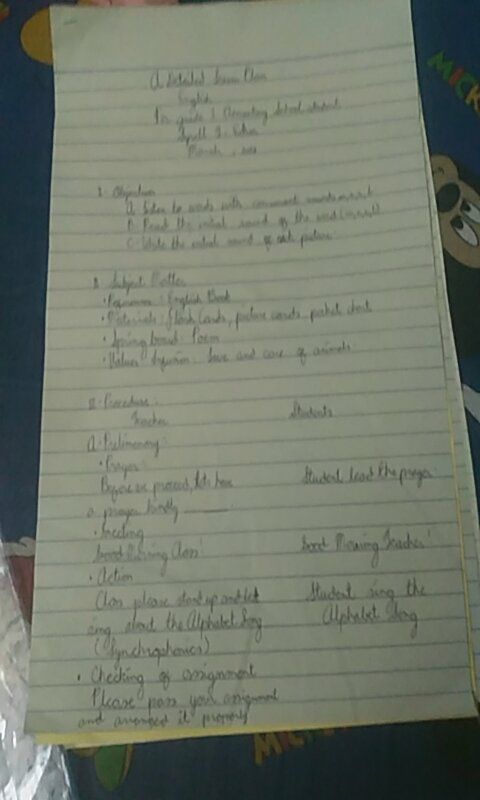 A Detailed Lesson Plan
English
For grade 1 Elementary School student
March
I. Objectives
A. Listen to words with consonant sounds m, s, t
B. Read the initial sound of the word (m, s, t)
C. Write the initial sound of each picture
II. Subject Matter
• References: English Book
• Materials: Flash Cards, picture cards, pocket chart
• Spring board: Poem
• Values Infusion: Love and care of animals
III. Procedure:
Teacher Students
A. Preliminary:
• Prayer:
Before we proceed, let's have Student lead the prayer
a prayer kindly ______
• Greeting
Good Morning Class! Good Morning Teacher!
• Action
Class please stand up and let Student sing the
sing about the Alphabet Song Alphabet Song
(Synchrophonics)
• Checking of assignment
Please pass your assignment
and arranged it properly
MICK
MICKEY